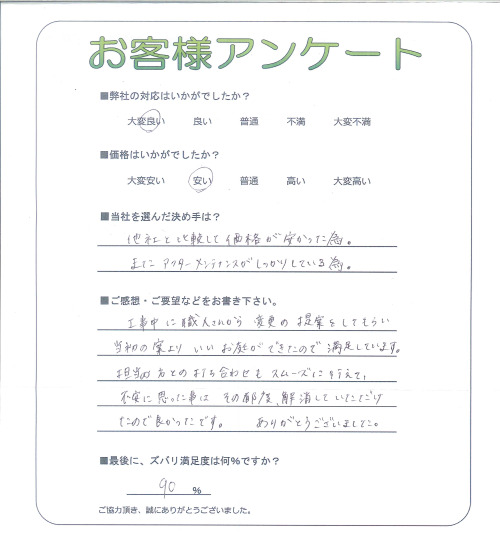 お客様アンケート
■弊社の対応はいかがでしたか？
大変良い 良い 普通 不満 大変不満
■価格はいかがでしたか？
大変安い 安い 普通 高い 大変高い
■当社を選んだ決め手は？
他社と比較して価格が安かった為。
またアフターメンテナンスがしっかりしている為。
■ご感想・ご要望などをお書き下さい。
工事中に職人さんから変更の提案をしてもらい
当初の案よりいいお庭ができたので満足しています。
担当の方との打ち合わせもスムーズに行えて、
不安に思った事はその都度、解消していただけ
たので良かったです。 ありがとうございました。
■最後に、ズバリ満足度は何％ですか？
90 ％
ご協力頂き、誠にありがとうございました。